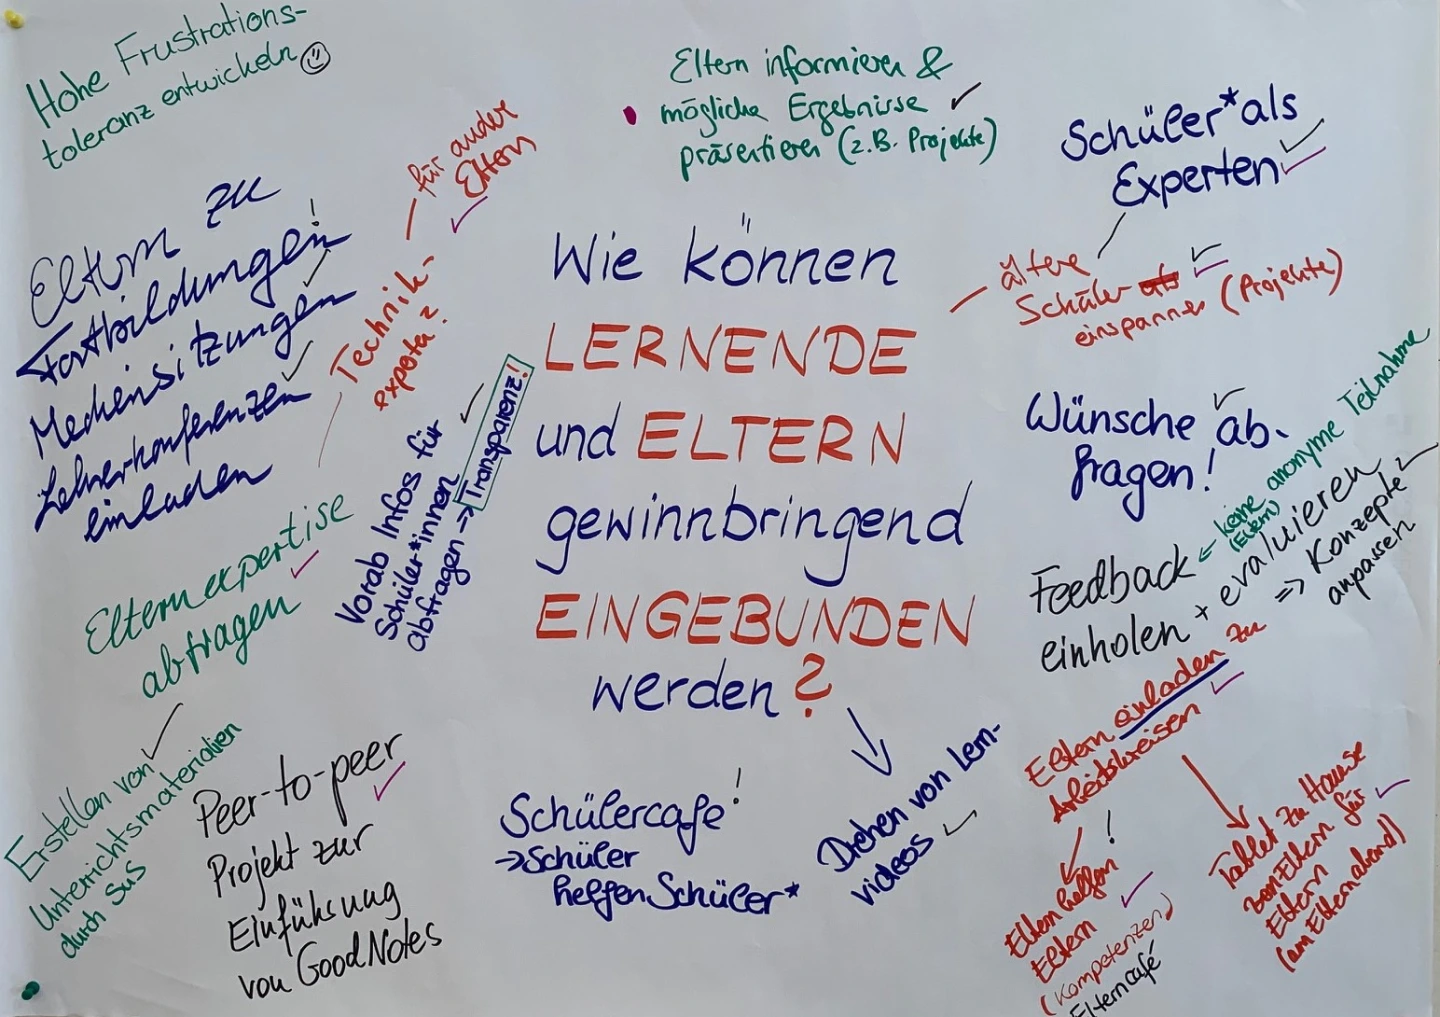 Hohe Frustrations-
toleranz entwickeln
Eltern informieren &
mögliche Ergebnisse
präsentieren (z.B. Projekte)
Schüler*als
Experten
ältere
Schüler als
einspannen (Projekte)
für andere
Eltern
Technik-
experte?
Eltern zu
Fortbildungen!
Mediensitzungen
Lehrerkonferenzen
einladen
Wie können
LERNENDE
und ELTERN
gewinnbringend
EINGEBUNDEN
werden?
Vorab Infos für
Schüler*innen
abfragen => Transparenz!
Wünsche ab-
fragen!
Feedback <= keine anonyme Teilnahme
(Eltern)
einholen + evaluieren
=> Konzepte
anpassen
Elternexpertise
abfragen
Erstellen von
Unterrichtsmaterialien
durch SuS
Peer-to-peer
Projekt zur
Einführung
von GoodNotes
Schülercafe!
→Schüler
helfen Schüler*
Drehen von Lern-
videos
Eltern einladen zu
Arbeitskreisen
!
Eltern helfen
Eltern
(Kompetenzen)
Elterncafé
Tablet zu Hause
von Eltern für
Eltern
(am Elternabend)